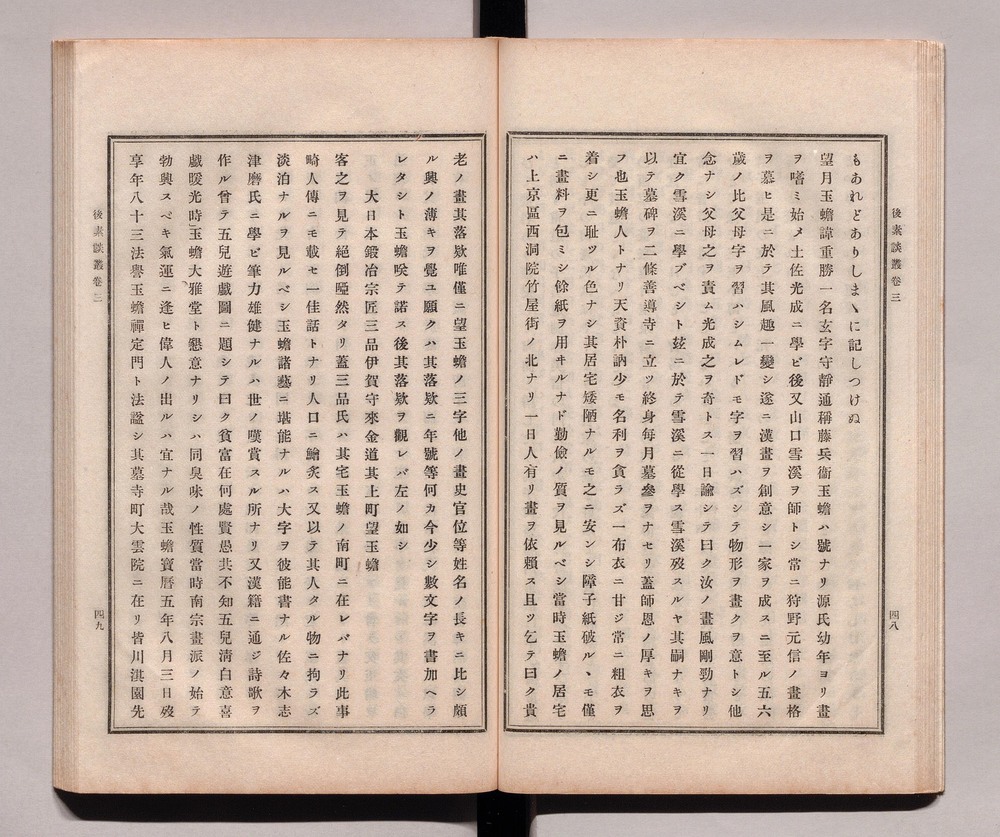 後素談叢卷三
四八
もあれどありしまゝに記しつけぬ
望月玉蟾諱重勝一名玄字守靜通稱藤兵衞玉蟾ハ號ナリ源氏幼年ヨリ畫
ヲ嗜ミ始メ土佐光成ニ學ビ後又山口雪溪ヲ師トシ常ニ狩野元信ノ畫格
ヲ慕ヒ是ニ於テ其風趣一變シ遂ニ漢畫ヲ創意シ一家ヲ成スニ至ル五六
歲ノ比父母字ヲ習ハシムレドモ字ヲ習ハズシテ物形ヲ畫クヲ意トシ他
念ナシ父母之ヲ責ム光成之ヲ奇トス一日諭シテ曰ク汝ノ畫風剛勁ナリ
宜ク雪溪ニ學ブベシト玆ニ於テ雪溪ニ從學ス雪溪歿スルヤ其嗣ナキヲ
以テ墓碑ヲ二條善導寺ニ立ツ終身每月墓參ヲナセリ蓋師恩ノ厚キヲ思
フ也玉蟾人トナリ天資朴訥少モ名利ヲ貪ラズ一布衣ニ甘ジ常ニ粗衣ヲ
着シ更ニ耻ツル色ナシ其居宅矮陋ナルモ之ニ安ンシ障子紙破ルヽモ僅
ニ畫料ヲ包ミシ餘紙ヲ用ヰルナド勤儉ノ質ヲ見ルベシ當時玉蟾ノ居宅
ハ上京區西洞院竹屋街ノ北ナリ一日人有リ畫ヲ依賴ス且ツ乞テ曰ク貴
老ノ畫其落欵唯僅ニ望玉蟾ノ三字他ノ畫史官位等姓名ノ長キニ比シ頗
ル興ノ薄キヲ覺ユ願クハ其落欵ニ年號等何カ今少シ數文字ヲ書加ヘラ
レタシト玉蟾咲テ諾ス後其落欵ヲ觀レバ左ノ如シ
大日本鍛冶宗匠三品伊賀守來金道其上町望玉蟾
客之ヲ見テ絕倒啞然タリ蓋三品氏ハ其宅玉蟾ノ南町ニ在レバナリ此事
畸人傳ニモ載セ一佳話トナリ人口ニ鱠炙ス又以テ其人タル物ニ拘ラズ
淡泊ナルヲ見ルベシ玉蟾諸藝ニ堪能ナルハ大字ヲ彼能書ナル佐々木志
津磨氏ニ學ビ筆力雄健ナルハ世ノ嘆賞スル所ナリ又漢籍ニ通ジ詩歌ヲ
作ル曾テ五兒遊戲圖ニ題シテ曰ク貧富在何處賢愚共不知五兒淸白意喜
戲暖光時」玉蟾大雅堂ト懇意ナリシハ同臭味ノ性質當時南宗畫派ノ始テ
勃興スベキ氣運ニ逢ヒ偉人ノ出ルハ宜ナル哉玉蟾寶曆五年八月三日歿
享年八十三法譽玉蟾禪定門ト法諡シ其墓寺町大雲院ニ在リ皆川淇園先
後素談叢卷三
四九